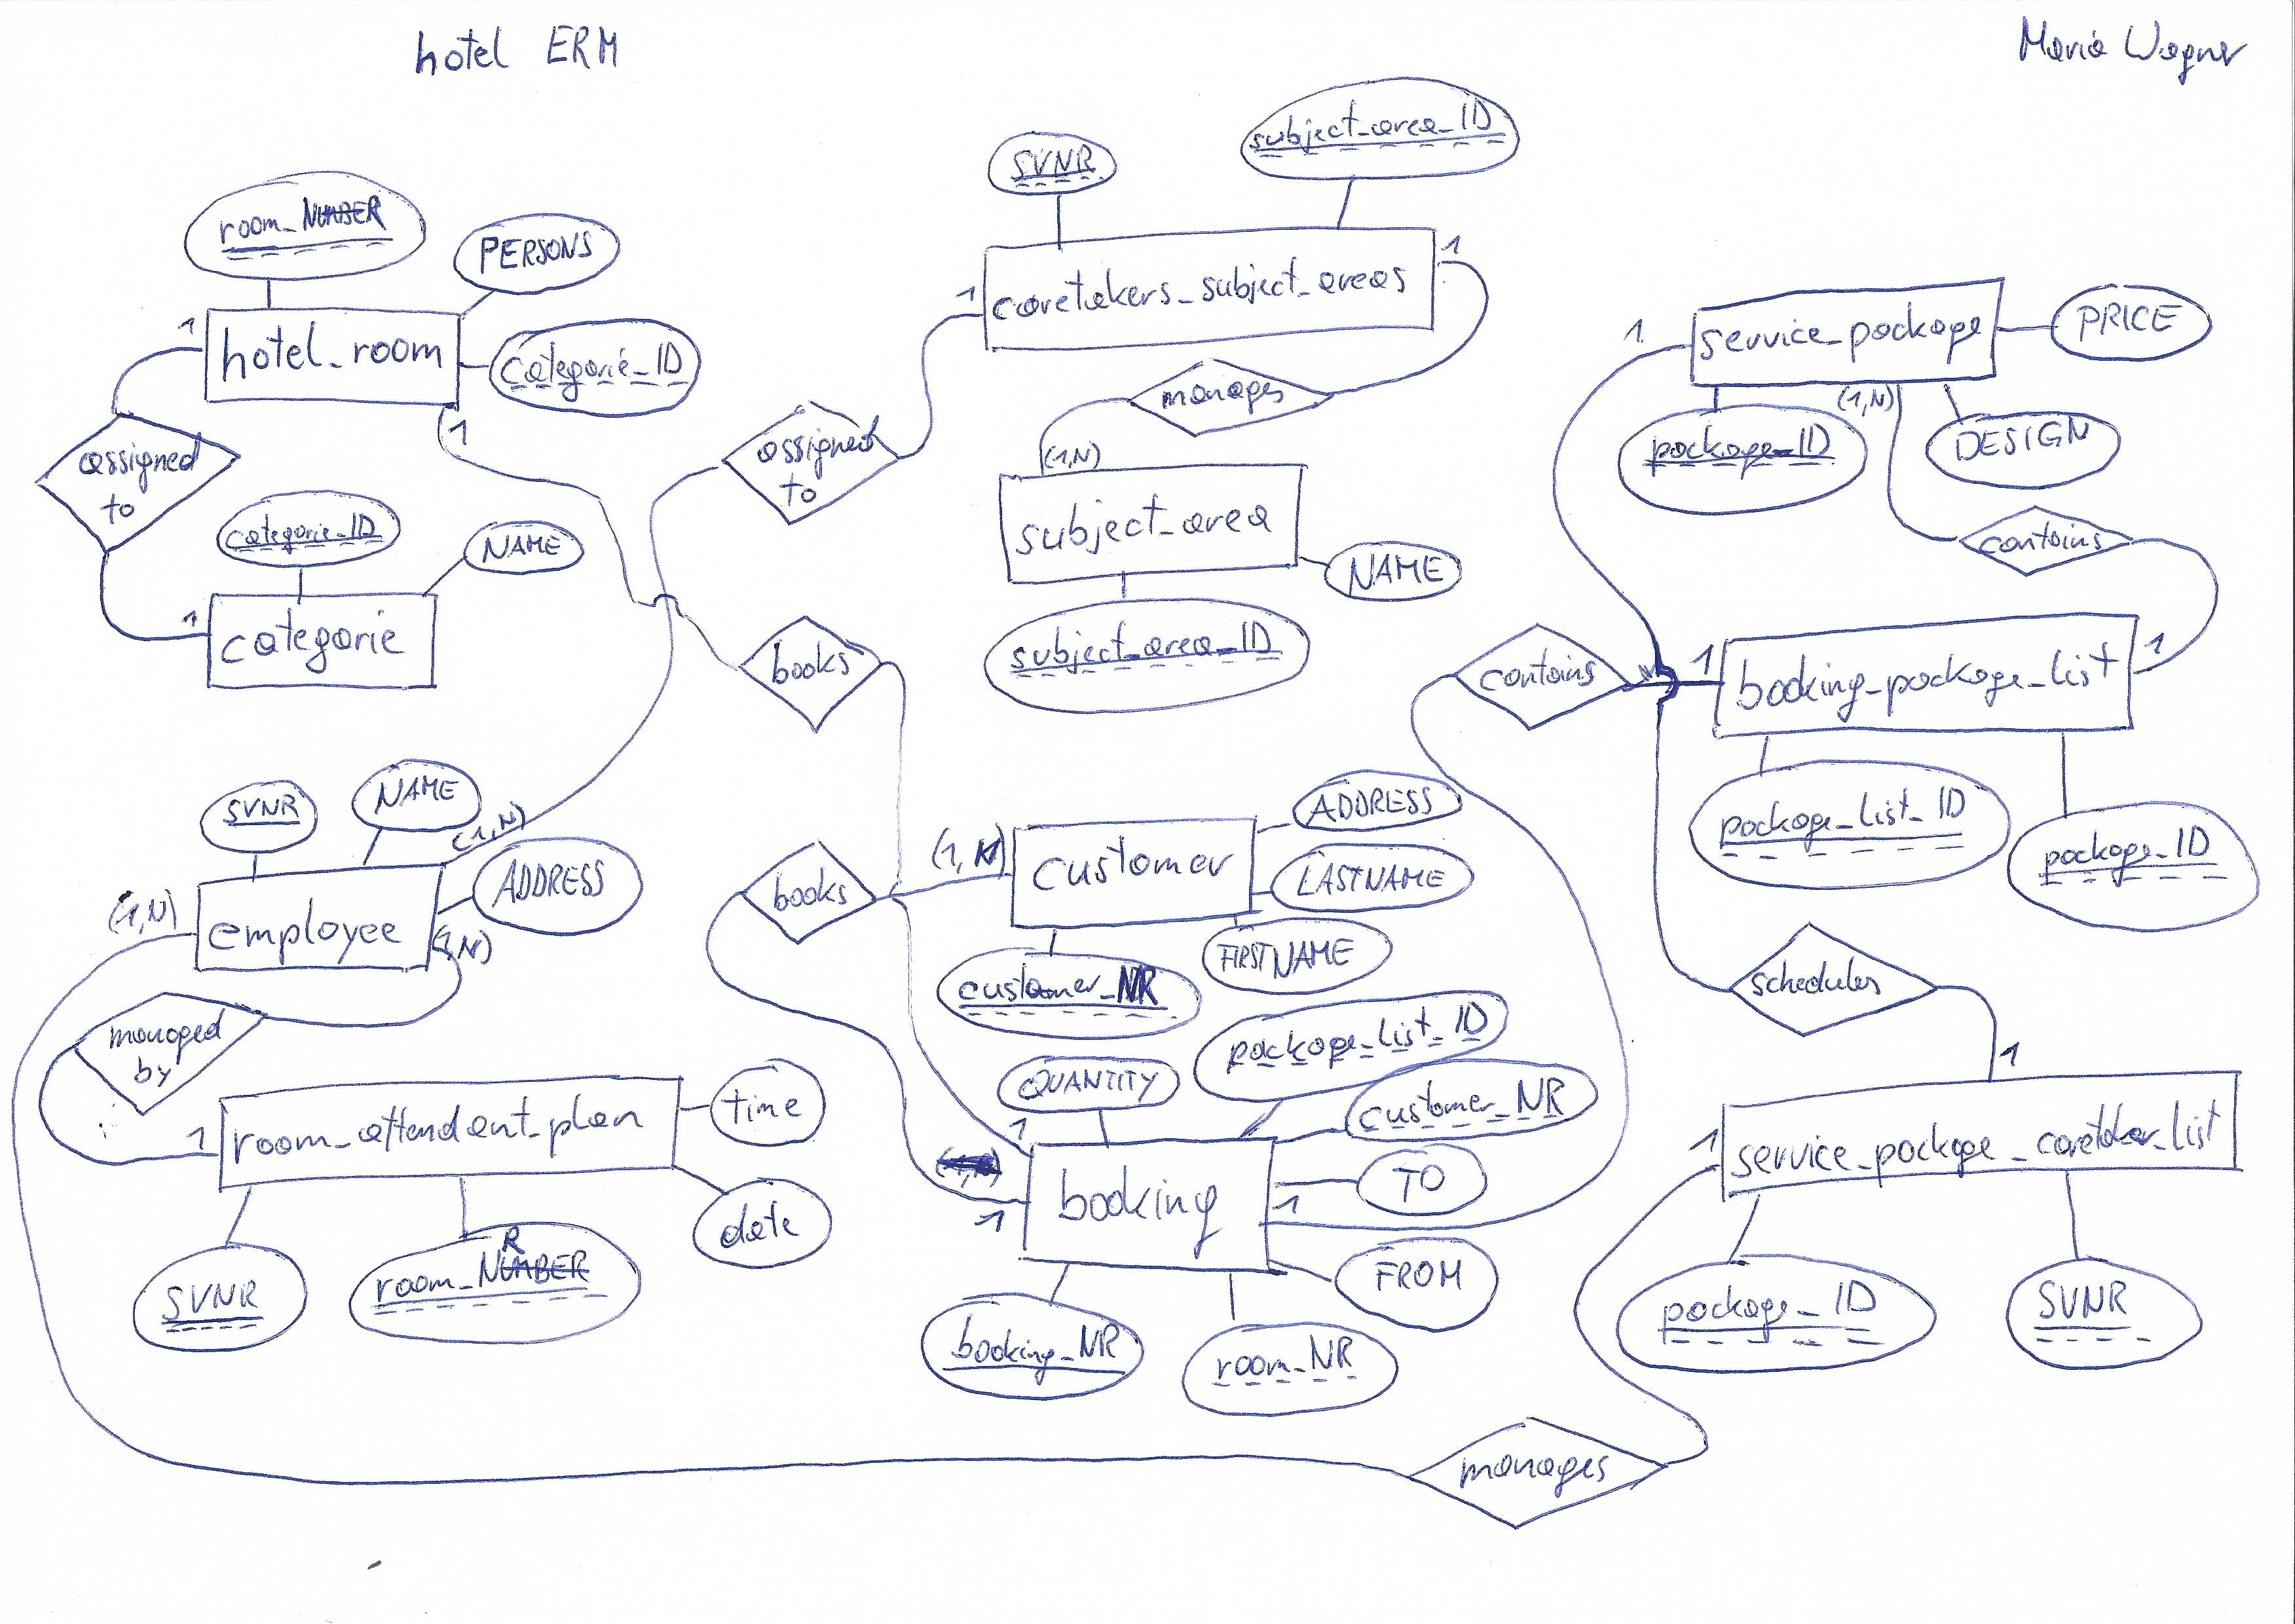 hotel ERM
Maria Wagner
room_NUMBER
PERSONS
1
hotel_room
categorie_ID
1
assigned
to
categorie_ID
NAME
1
categorie
SVNR
subject_area_ID
1
caretakers_subject_areas
1
manages
assigned
to
(1,N)
subject_area
NAME
subject_area_ID
1
service_package
PRICE
(1,N)
package_ID
DESIGN
contains
contains
1
booking_package_list
1
package_list_ID
package_ID
books
SVNR
NAME
(1,N)
ADDRESS
(1,N)
employee
(1,N)
managed
by
1
room_attendant_plan
time
date
SVNR
room_NUMBER
R
books
(1,N)
customer
ADDRESS
LASTNAME
FIRSTNAME
customer_NR
QUANTITY
package_list_ID
customer_NR
1
1
booking
1
TO
FROM
booking_NR
room_NR
schedules
1
1
service_package_caretaker_list
package_ID
SVNR
manages